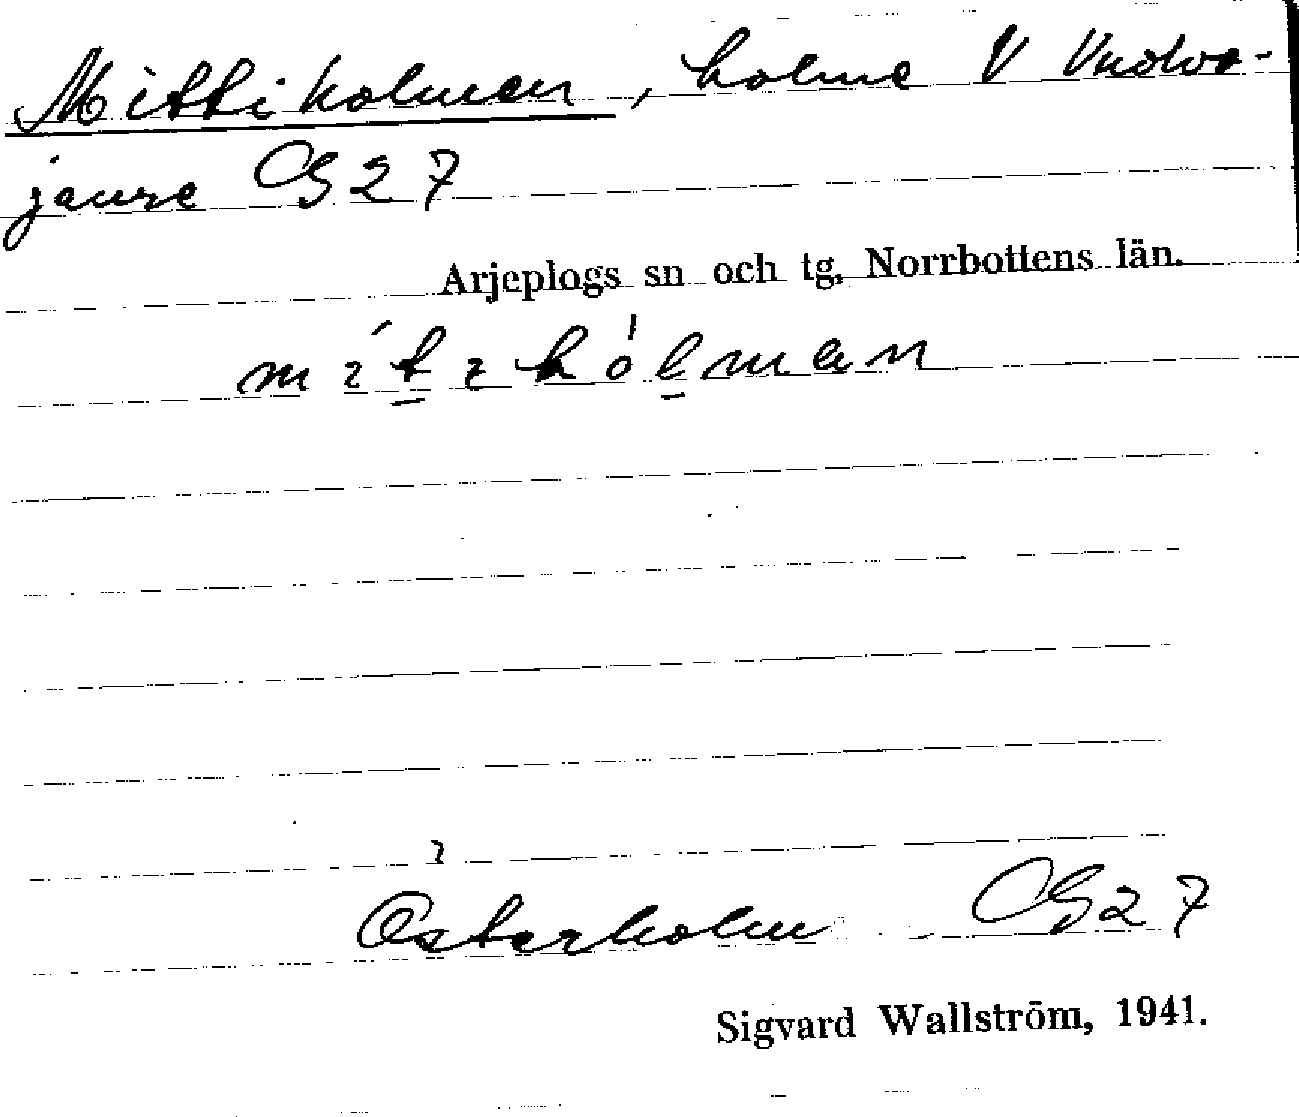 Mittiholmen, holme V Vuolva-
jaure CG 27
Arjeplogs sn och tg. Norrbottens län.
Österholm CG 27
Sigvard Wallström, 1941.